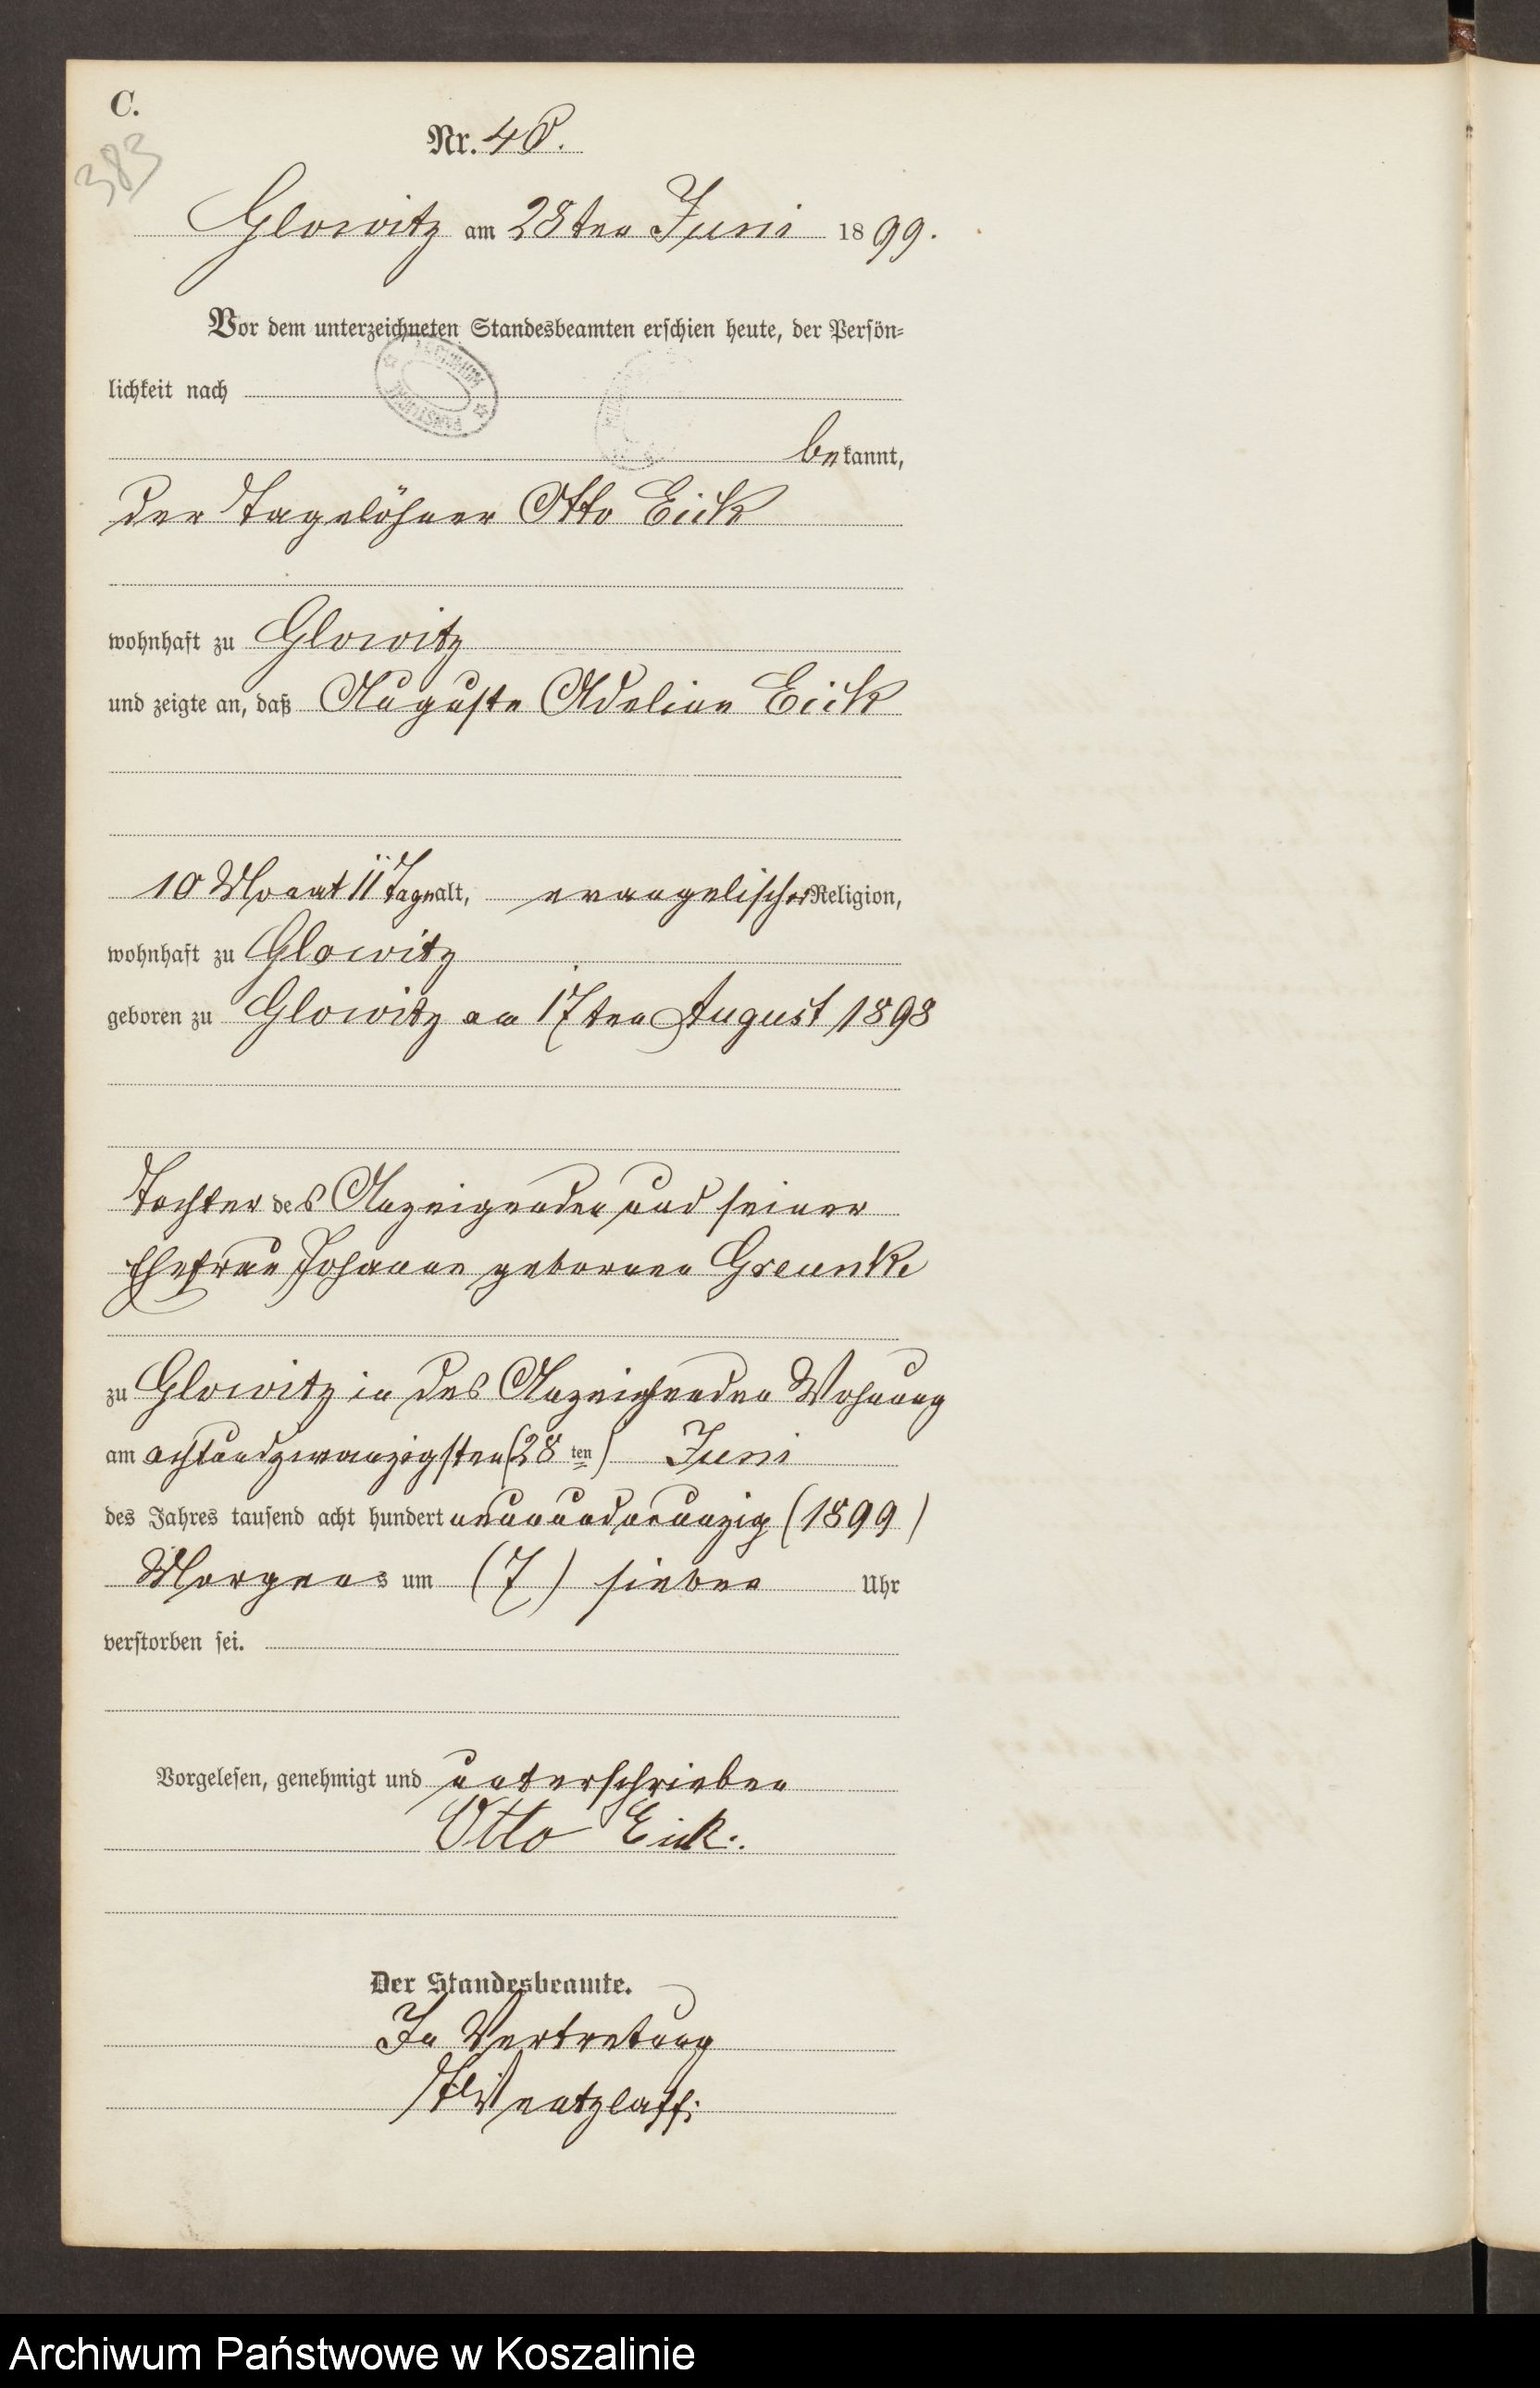 C.
383
Nr. 48.
Glowitz am 28ten Juni 1899.
Vor dem unterzeichneten Standesbeamten erschien heute, der Persön-
lichkeit nach
bekannt,
der Tagelöhner Otto Eick
wohnhaft zu Glowitz
und zeigte an, daß Auguste Adeline Eick
10 Monat 11 Tage alt, evangelischer Religion,
wohnhaft zu Glowitz
geboren zu Glowitz am 17ten August 1898
Tochter des Anzeigenden und seiner
Ehefrau Johanne geborenen Greunke
zu Glowitz in des Anzeigenden Wohnung
am achtundzwanzigsten (28ten) Juni
des Jahres tausend acht hundert neunundneunzig (1899)
Morgens um (7) sieben Uhr
verstorben sei.
Vorgelesen, genehmigt und unterschrieben
Otto Eick.
Der Standesbeamte.
In Vertretung
Wentzlaff.
Archiwum Państwowe w Koszalinie